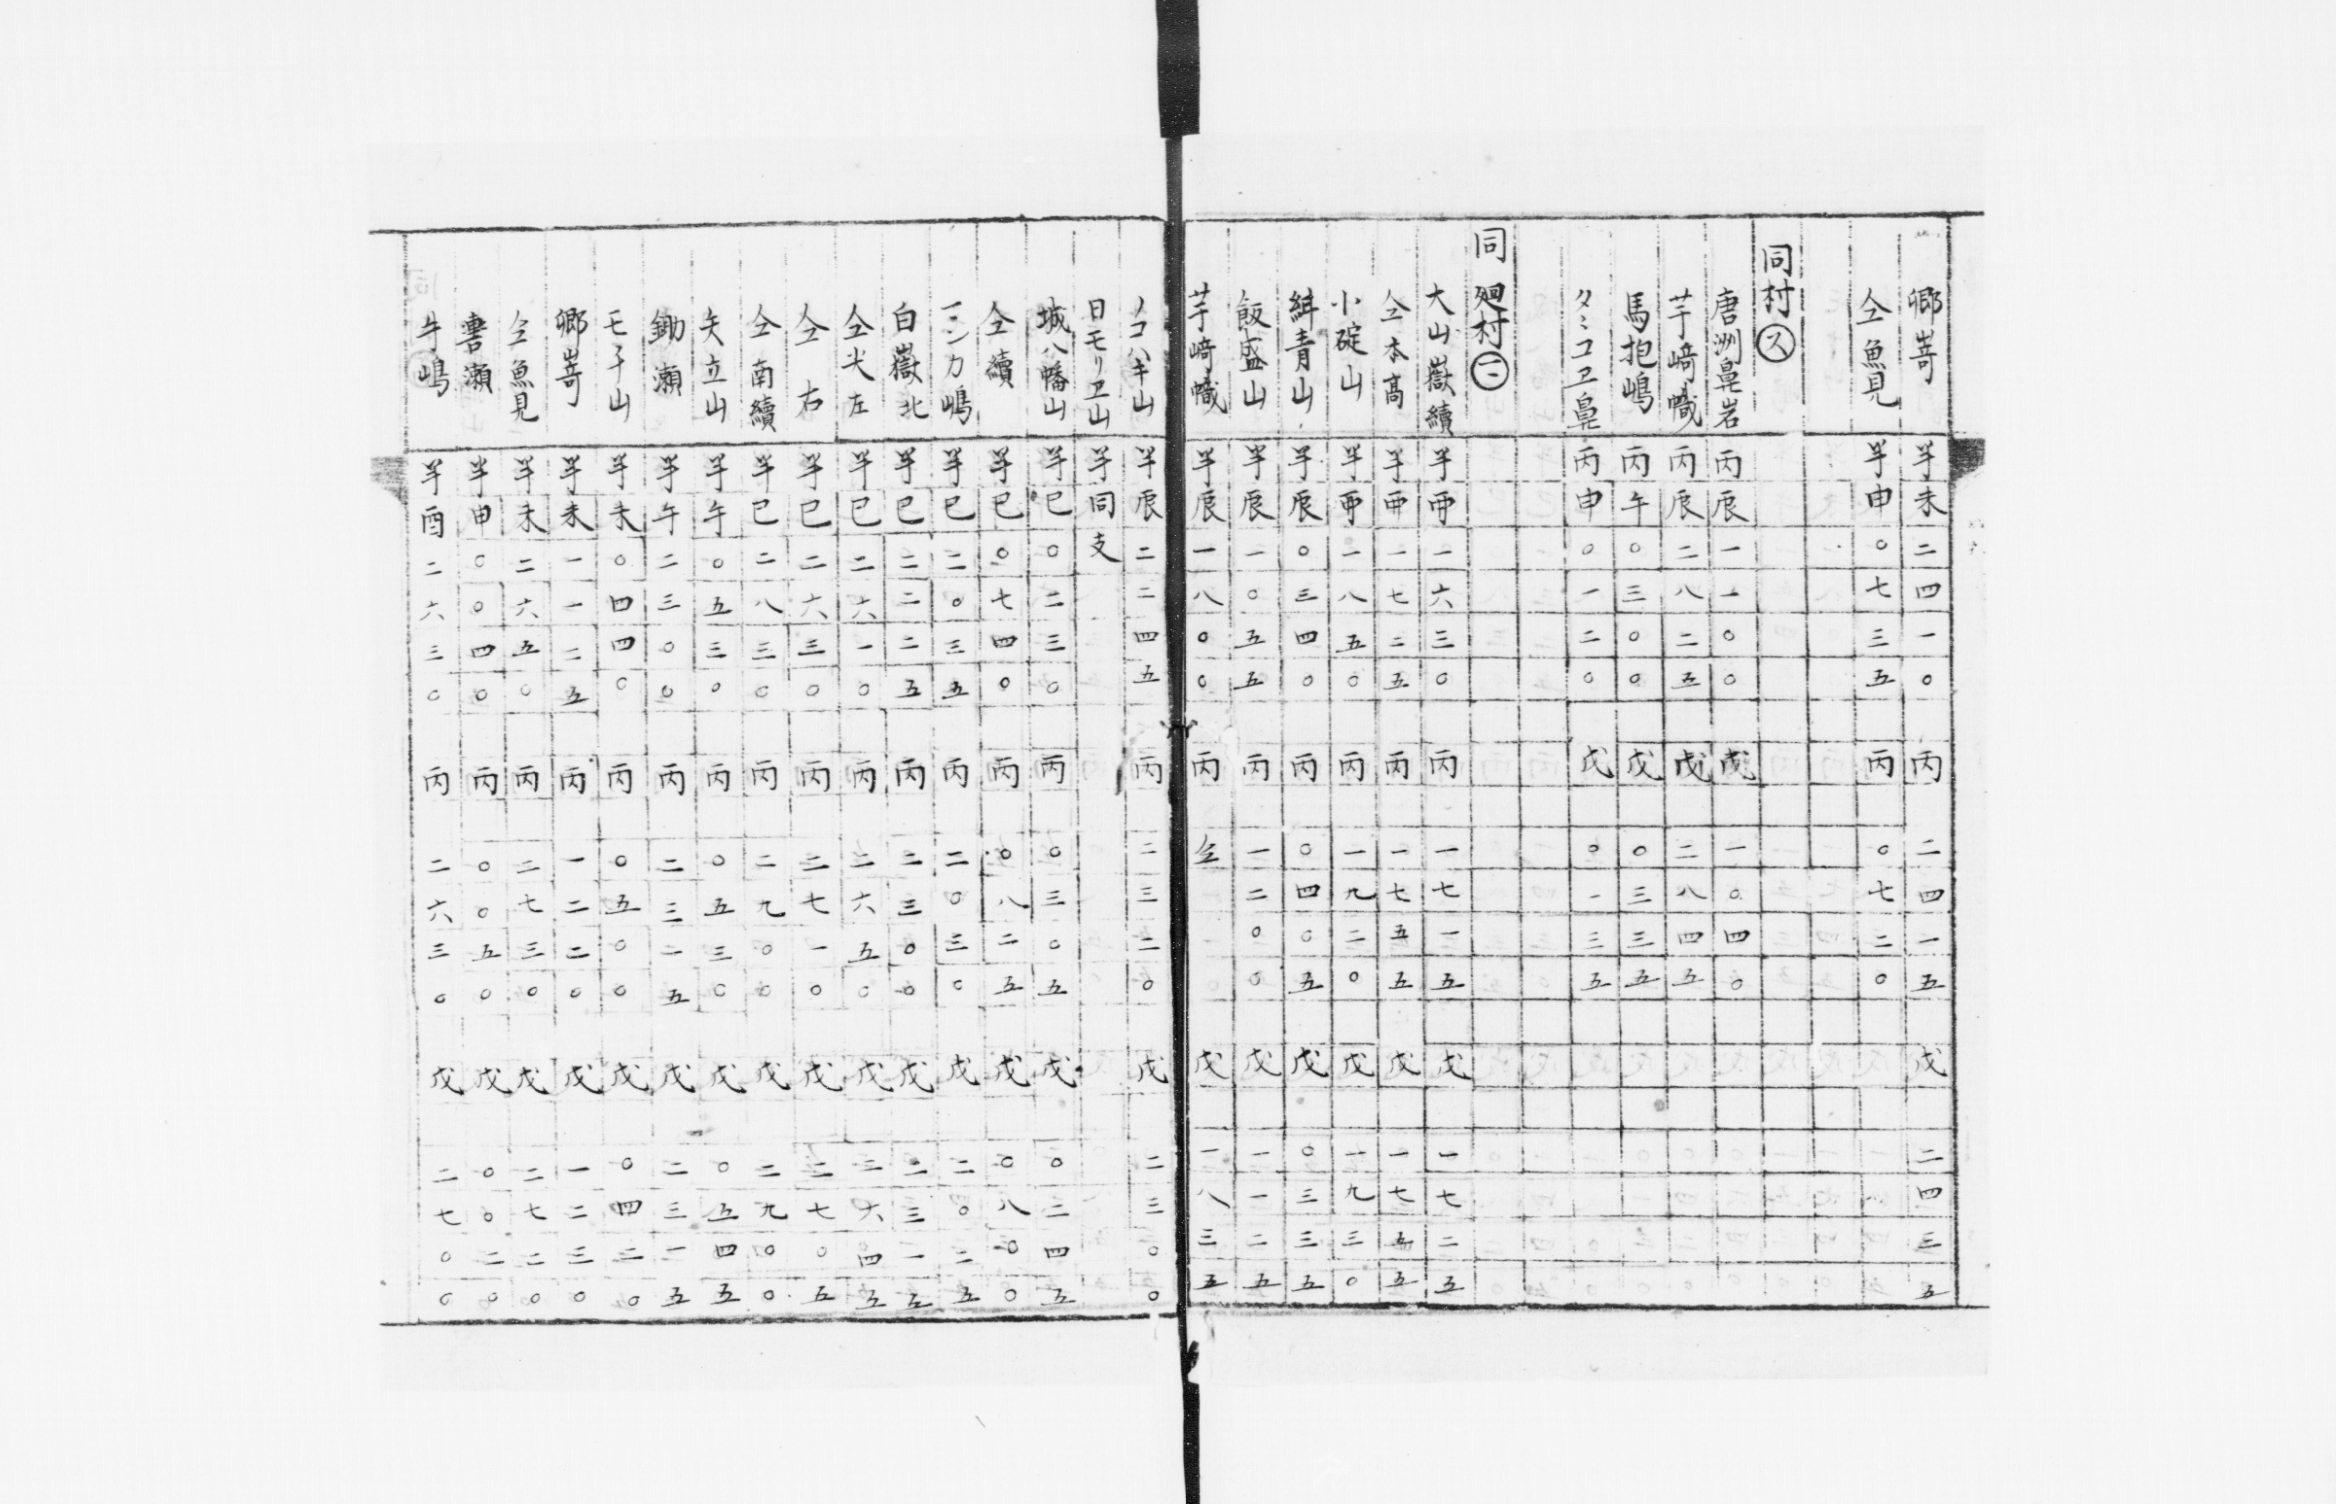 郷嵜 半未 二四一〇 丙 二四一五 戊 二四三五
仝魚見 半申 〇七三五 丙 〇七二〇
同村 ス
唐洲鼻岩 丙辰 一一〇〇 戊 一〇四〇
芋﨑幟 丙辰 二八二五 戊 二八四五
馬抱嶋 丙午 〇三〇〇 戊 〇三三五
タミコヱ鼻 丙申 〇一二〇 戊 〇一三五
同 廻村 二
大山嶽續 半 一六三〇 丙 一七一五 戊 一七二五
仝本髙 半 一七二五 丙 一七五五 戊 一七五五
小碇山 半 一八五〇 丙 一九二〇 戊 一九三〇
青山 半辰 〇三四〇 丙 〇四〇五 戊 〇三三五
飯盛山 半辰 一〇五五 丙 一二〇〇 戊 一一二五
芋﨑幟 半辰 一八〇〇 丙 仝 戊 一八三五
ノコハキ山 半辰 二二四五 丙 二三二〇 戊 二三〇〇
日モリヱ山 半同支
城八幡山 半巳 〇二三〇 丙 〇三〇五 戊 〇二四五
仝續 半巳 〇七四〇 丙 〇八二五 戊 〇八〇〇
嶋 半巳 二〇三五 丙 二〇三〇 戊 二〇二五
白嶽北 半巳 二二二五 丙 二三〇〇 戊 二三一五
仝尖左 半巳 二六一〇 丙 二六五〇 戊 二六四五
仝 右 半巳 二六三〇 丙 二七一〇 戊 二七〇五
仝南續 半巳 二八三〇 丙 二九〇〇 戊 二九〇〇
矢立山 半午 〇五三〇 丙 〇五三〇 戊 〇五四五
鋤瀬 半午 二三〇〇 丙 二三一五 戊 二三一五
モチ山 半未 〇四四〇 丙 〇五〇〇 戊 〇四二〇
郷嵜 半未 一一二五 丙 一二二〇 戊 一二三〇
仝魚見 半未 二六五〇 丙 二七三〇 戊 二七二〇
瀬 半申 〇〇四〇 丙 〇〇五〇 戊 〇〇二〇
牛嶋 半酉 二六三〇 丙 二六三〇 戊 二七〇〇